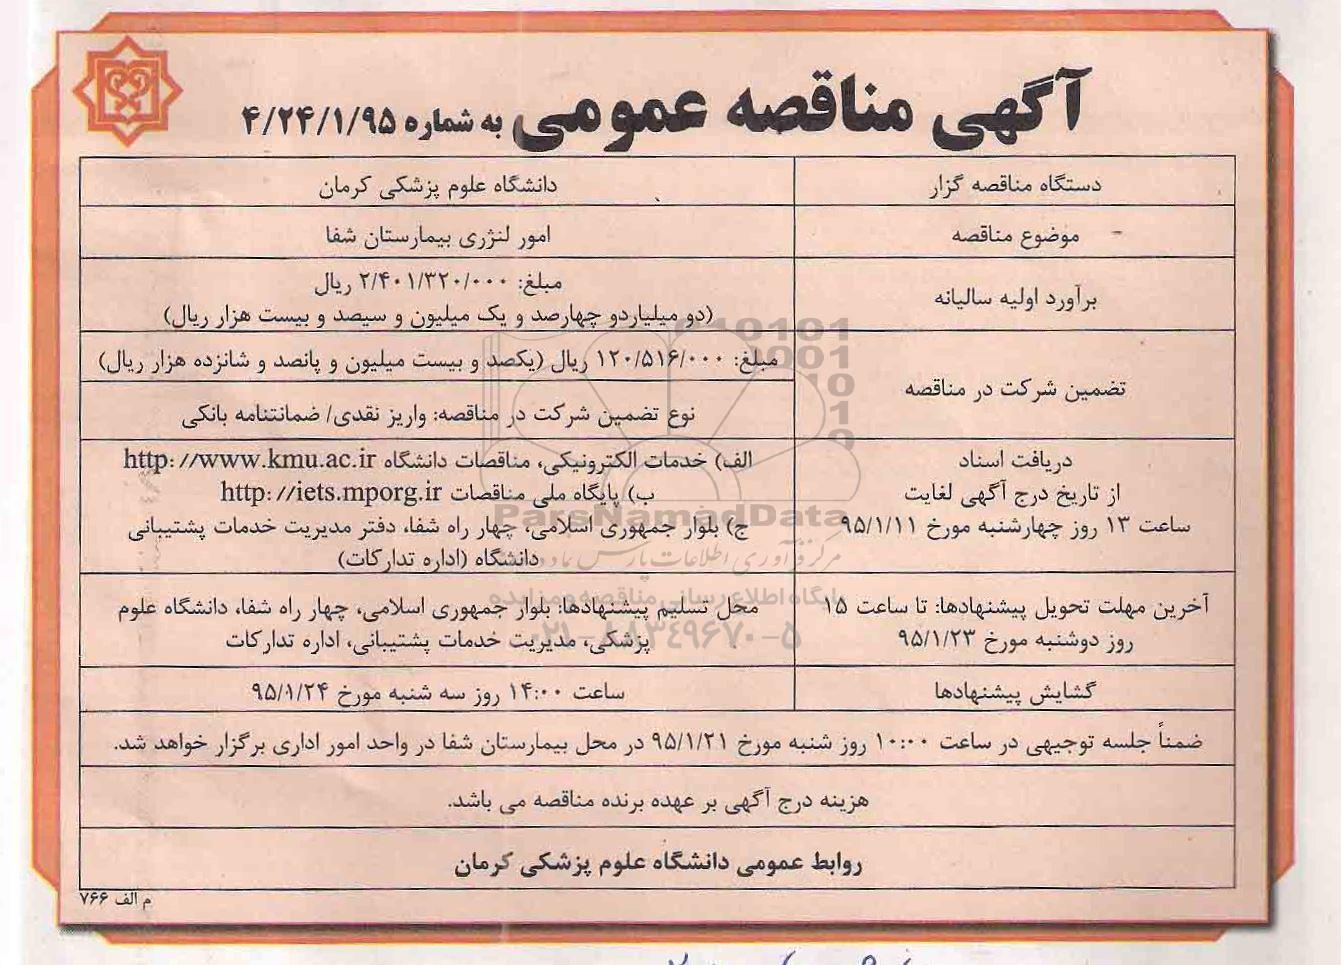 آگهی مناقصه عمومی به شماره ۴/۲۴/۱/۹۵
دستگاه مناقصه گزار
دانشگاه علوم پزشکی کرمان
موضوع مناقصه
امور لنژری بیمارستان شفا
برآورد اولیه سالیانه
مبلغ: ۲/۴۰۱/۳۲۰/۰۰۰ ریال
(دو میلیاردو چهارصد و یک میلیون و سیصد و بیست هزار ریال)
تضمین شرکت در مناقصه
مبلغ: ۱۲۰/۵۱۶/۰۰۰ ریال (یکصد و بیست میلیون و پانصد و شانزده هزار ریال)
نوع تضمین شرکت در مناقصه: واریز نقدی/ ضمانتنامه بانکی
دریافت اسناد
از تاریخ درج آگهی لغایت
ساعت ۱۳ روز چهارشنبه مورخ ۹۵/۱/۱۱
الف) خدمات الکترونیکی، مناقصات دانشگاه http://www.kmu.ac.ir
ب) پایگاه ملی مناقصات http://iets.mporg.ir
ج) بلوار جمهوری اسلامی، چهار راه شفا، دفتر مدیریت خدمات پشتیبانی
دانشگاه (اداره تدارکات)
آخرین مهلت تحویل پیشنهادها: تا ساعت ۱۵
روز دوشنبه مورخ ۹۵/۱/۲۳
محل تسلیم پیشنهادها: بلوار جمهوری اسلامی، چهار راه شفا، دانشگاه علوم
پزشکی، مدیریت خدمات پشتیبانی، اداره تدارکات
گشایش پیشنهادها
ساعت ۱۴:۰۰ روز سه شنبه مورخ ۹۵/۱/۲۴
ضمناً جلسه توجیهی در ساعت ۱۰:۰۰ روز شنبه مورخ ۹۵/۱/۲۱ در محل بیمارستان شفا در واحد امور اداری برگزار خواهد شد.
هزینه درج آگهی بر عهده برنده مناقصه می باشد.
روابط عمومی دانشگاه علوم پزشکی کرمان
م الف ۷۶۶
ParsNamadData
پایگاه اطلاع رسانی مناقصه و مزایده
۰۲۱-۸۸۳۴۹۶۷۰-۵